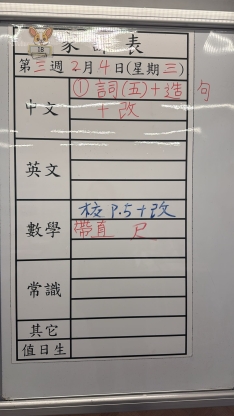 家課表
第三週2月4日(星期三)
中文 ①詞(五)+造句
+改
英文
數學 校 P.5+改
帶直尺
常識
其它
值日生